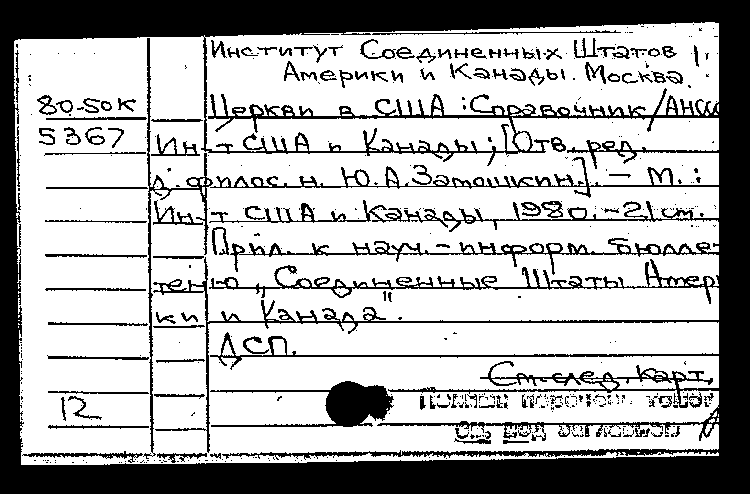 Институт Соединенных Штатов
Америки и Канады. Москва.
80-50К
Церкви в США : Справочник / АНССС
5367
Ин-т США и Канады; [Отв. ред.
д. филос. н. Ю.А.Замошкин.]. — М. :
Ин-т США и Канады, 1980. - 21 см.
Прил. к науч.-информ. бюлле-
теню „Соединенные Штаты Амери
ки и Канада".
ДСП.
См. след. карт.
12
Полный перечень
см. под заглавием